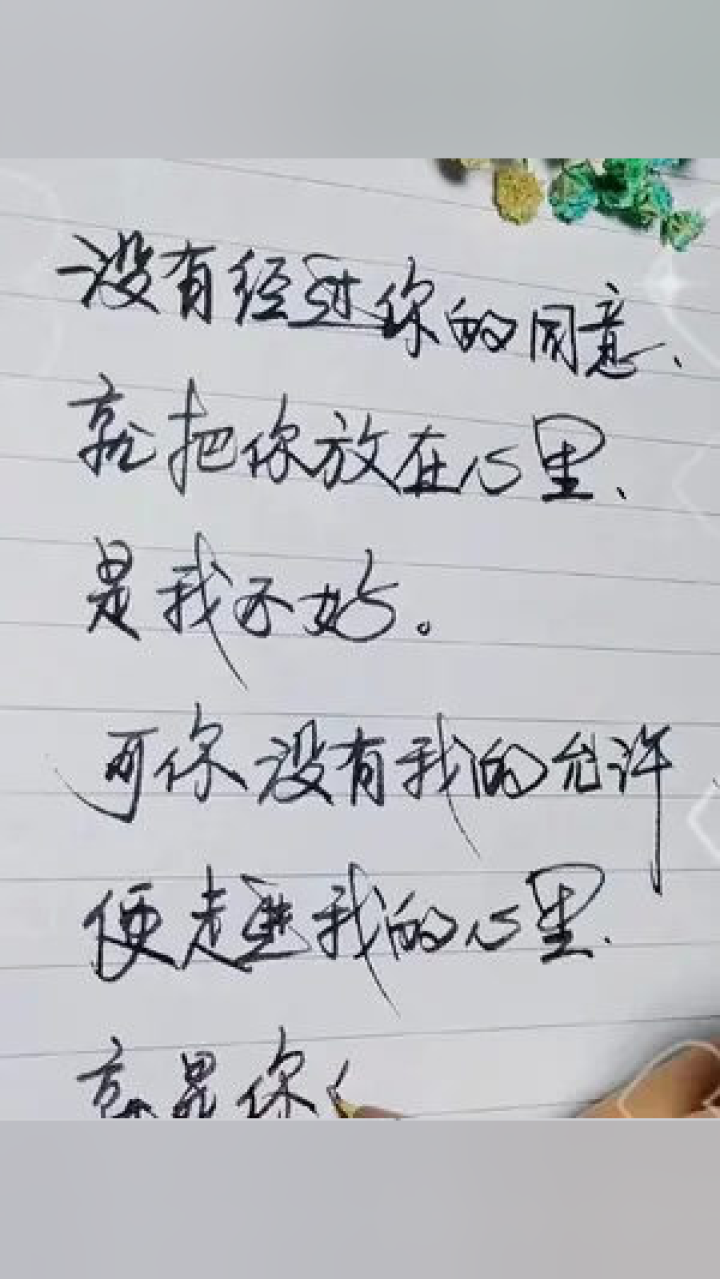 没有经过你的同意、
就把你放在心里、
是我不好。
可你没有我的允许
便走进我的心里、
就是你